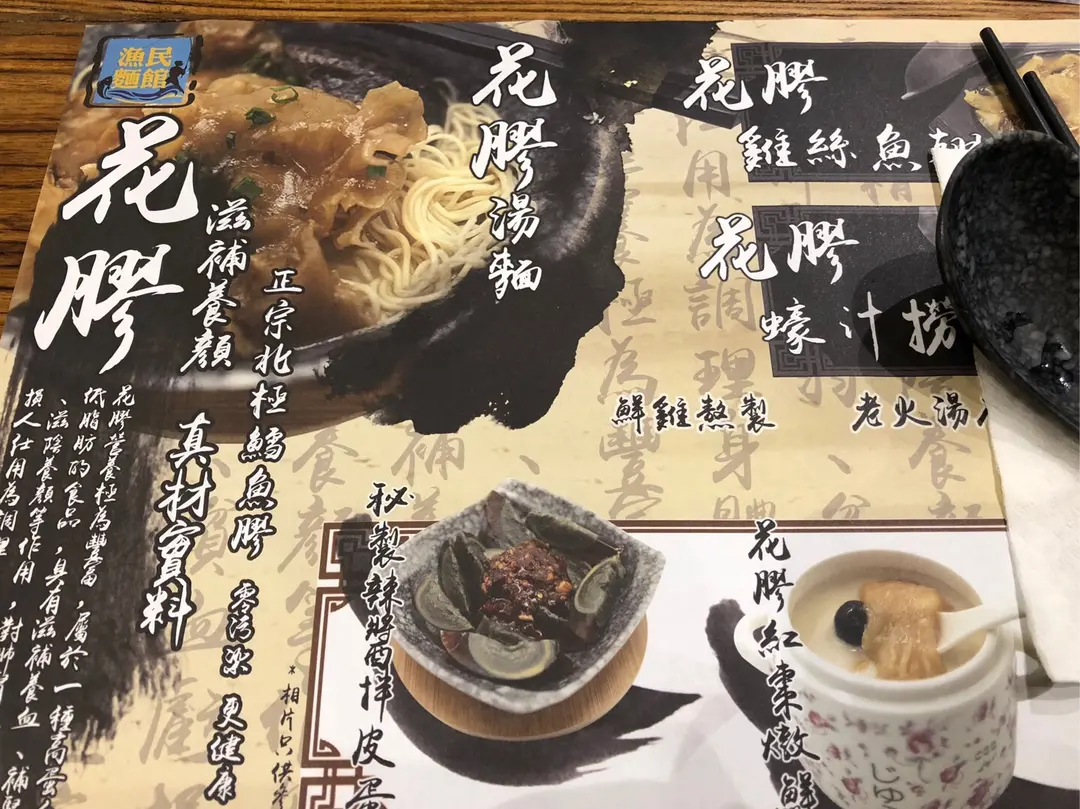 漁民
麵館
花膠
滋補養顏
正宗北極鱈魚膠
真材實料
零污染 更健康
花膠營養極為豐富，屬於一種高蛋
低脂肪的食品，具有滋補養血、補
、滋陰養顏等作用，對肺
損人仕用為調理
*相片只供參
花膠湯麵
花膠
雞絲魚翅
花膠
蠔汁撈
鮮雞熬製
老火湯
秘製辣醬酉拌皮蛋
花膠紅棗燉鮮
じゆ